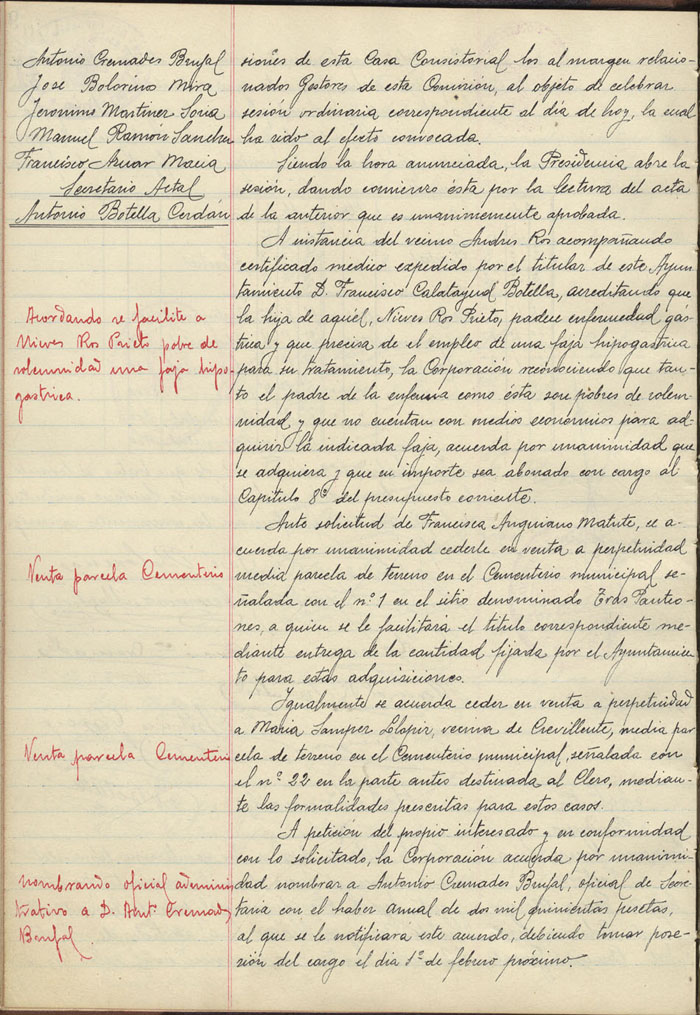 Antonio Cremades Brufal
Jose Bolorino Mira
Jeronimo Martinez Soria
Manuel Ramón Sanchez
Francisco Aznar Macia
Secretario Actal
Antonio Botella Cerdán
Acordando se facilite a
Nieves Ros Prieto pobre de
solemnidad una faja hipo-
gastrica.
Venta parcela Cementerio
Venta parcela Cementerio
nombrando oficial adminis
trativo a D. Antº Cremades
Brufal.
siones de esta Casa Consistorial los al margen relacio-
nados Gestores de esta Comisión, al objeto de celebrar
sesión ordinaria correspondiente al dia de hoy, la cual
ha sido al efecto convocada.
Siendo la hora anunciada, la Presidencia abre la
sesión, dando comienzo ésta por la lectura del acta
de la anterior que es unanimemente aprobada.
A instancia del vecino Andres Ros acompañando
certificado medico expedido por el titular de este Ayun-
tamiento D. Francisco Calatayud Botella, acreditando que
la hija de aquel, Nieves Ros Prieto, padece enfermedad gas-
trica y que precisa de el empleo de una faja hipogastrica
para su tratamiento, la Corporación reconociendo que tan-
to el padre de la enferma como ésta son pobres de solem-
nidad y que no cuentan con medios economicos para ad-
quirir la indicada faja, acuerda por unanimidad que
se adquiera y que su importe sea abonado con cargo al
Capitulo 8º del presupuesto corriente.
Ante solicitud de Francisca Anguiano Matute, se a-
cuerda por unanimidad cederle en venta a perpetuidad
media parcela de terreno en el Cementerio municipal se-
ñalada con el nº 1 en el sitio denominado Tras Panteo-
nes, a quien se le facilitará el titulo correspondiente me-
diante entrega de la cantidad fijada por el Ayuntamien-
to para estas adquisiciones.
Igualmente se acuerda ceder en venta a perpetuidad
a Maria Samper Llopis, vecina de Crevillente, media par
cela de terreno en el Cementerio municipal, señalada con
el nº 22 en la parte antes destinada al Clero, median-
te las formalidades prescritas para estos casos.
A petición del propio interesado y en conformidad
con lo solicitado, la Corporación acuerda por unanimi-
dad nombrar a Antonio Cremades Brufal, oficial de Secre-
taria con el haber anual de dos mil quinientas pesetas,
al que se le notificara este acuerdo, debiendo tomar pose-
sión del cargo el dia 1º de febrero próximo.